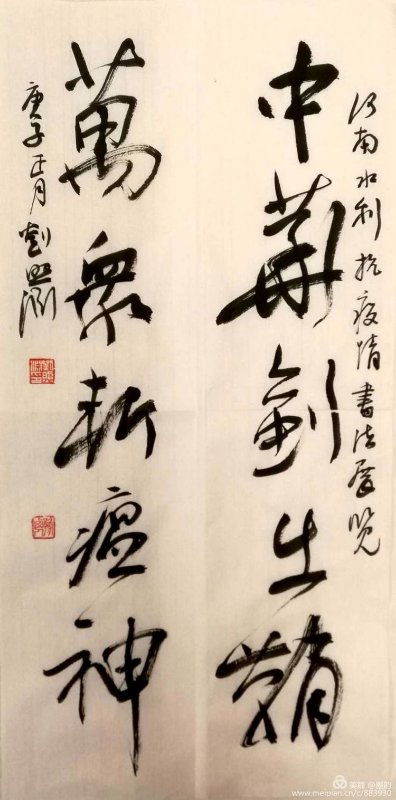 河南水利抗疫情書法展览
中華劍出鞘
萬衆斬瘟神
庚子正月劉
美篇
www.meipian.cn/c/883930